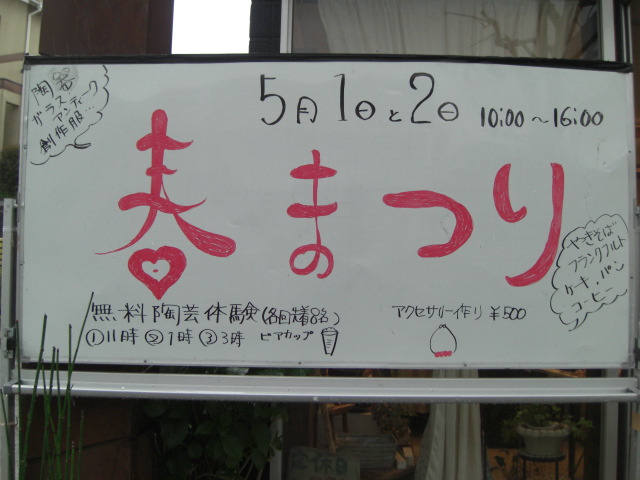 陶芸
ガラス
アンティーク
創作服...
5月1日と2日 10:00~16:00
春まつり
やきそば
フランクフルト
ケーキ・パン
コーヒー
無料陶芸体験(各回先着8名)
①11時 ②1時 ③3時 ビアカップ
アクセサリー作り ¥500